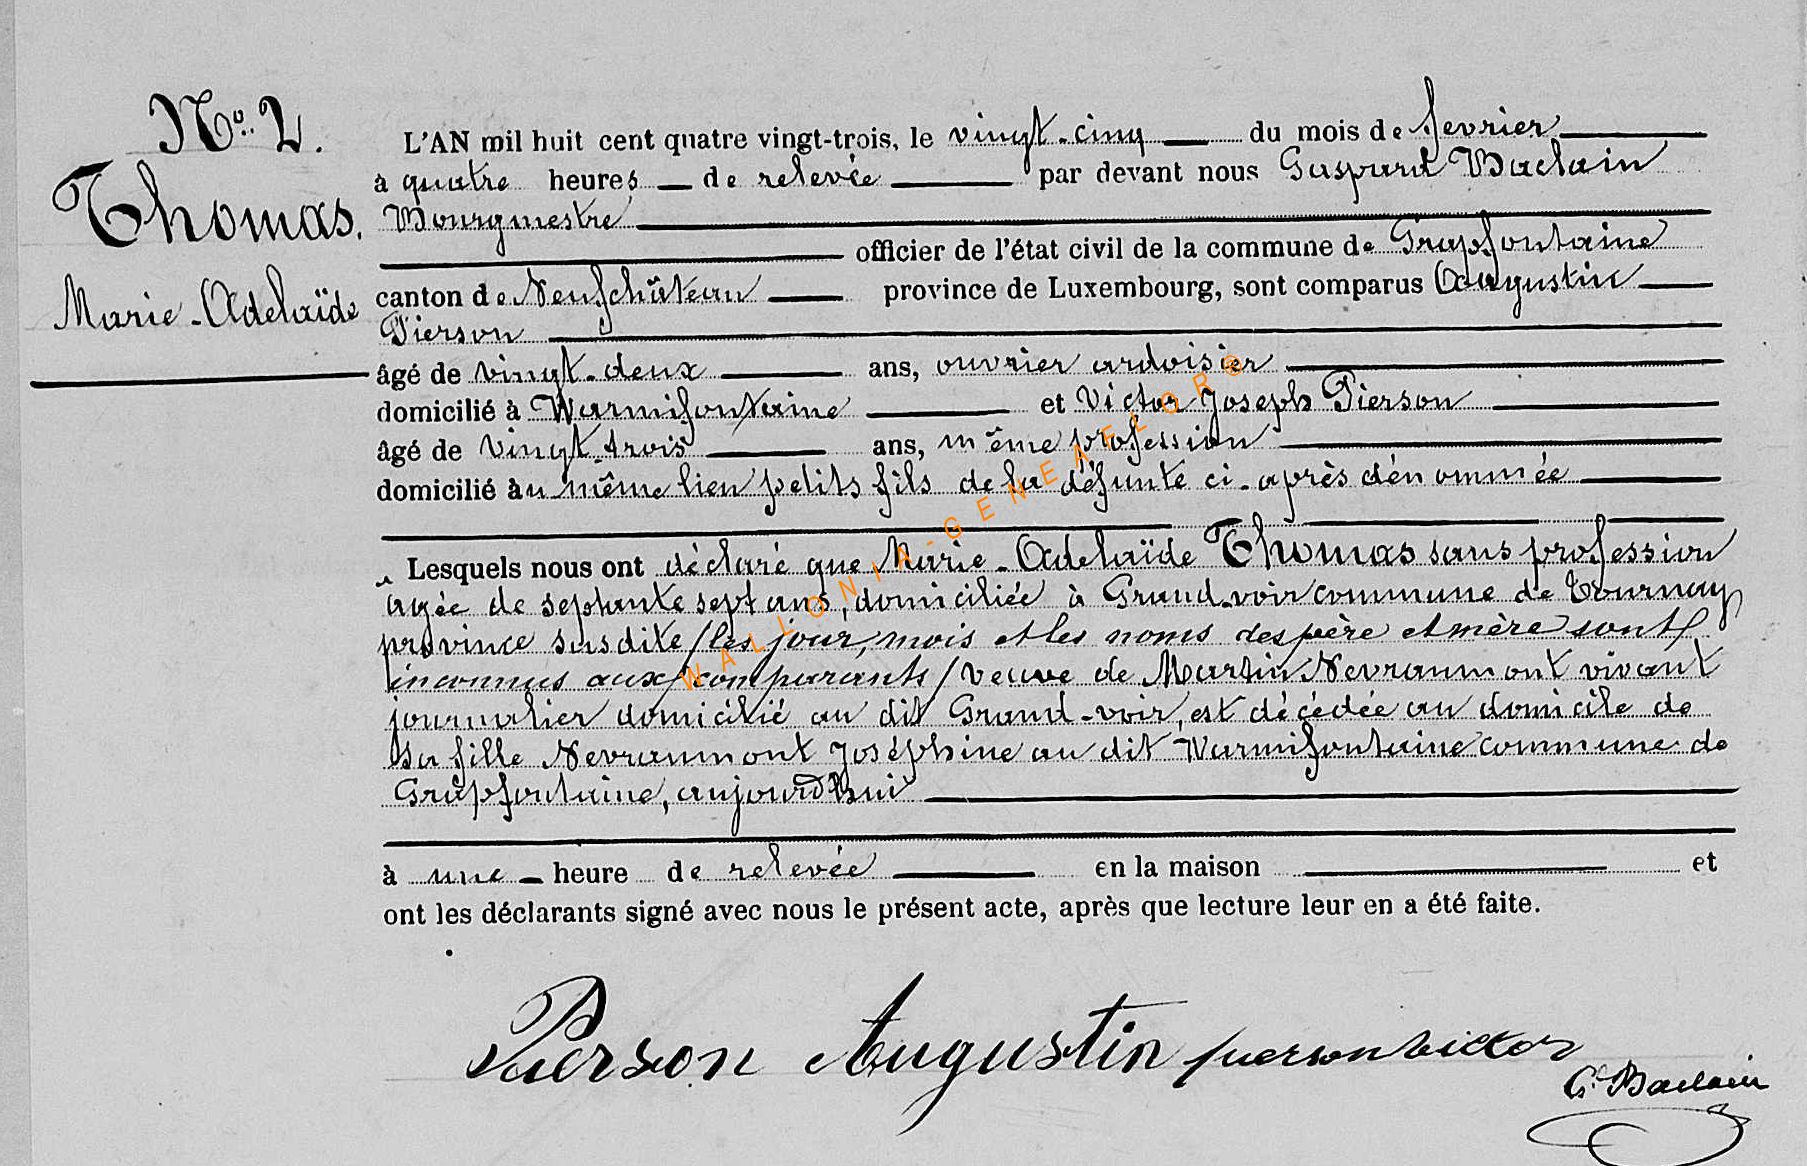 No. 2.
Thomas.
Marie-Adelaïde
L'AN mil huit cent quatre vingt-trois, le vingt-cinq du mois de fevrier
à quatre heures de relevée par devant nous Gaspard Baclain
Bourgmestre
officier de l'état civil de la commune de Grapfontaine
canton de Neufchâteau province de Luxembourg, sont comparus Augustin
Pierson
âgé de vingt-deux ans, ouvrier ardoisier
domicilié à Warmifontaine et Victor Joseph Pierson
âgé de vingt-trois ans, même profession
domicilié àu même lieu petits fils de la défunte ci-après dénommée
Lesquels nous ont déclaré que Marie-Adelaïde Thomas sans profession
agée de septante sept ans, domiciliée à Grand-voir commune de Tournay
province susdite /les jour, mois et les noms des père et mère sont
inconnus aux comparants/ veuve de Martin Nevraumont vivant
journalier domicilié au dit Grand-voir, est décédée au domicile de
sa fille Nevraumont Joséphine au dit Warmifontaine commune de
Grapfontaine, aujourd'hui
à une heure de relevée en la maison et
ont les déclarants signé avec nous le présent acte, après que lecture leur en a été faite.
Pierson Augustin pierson victor
G. Baclain
WALLONIA-GENEAFLOR®